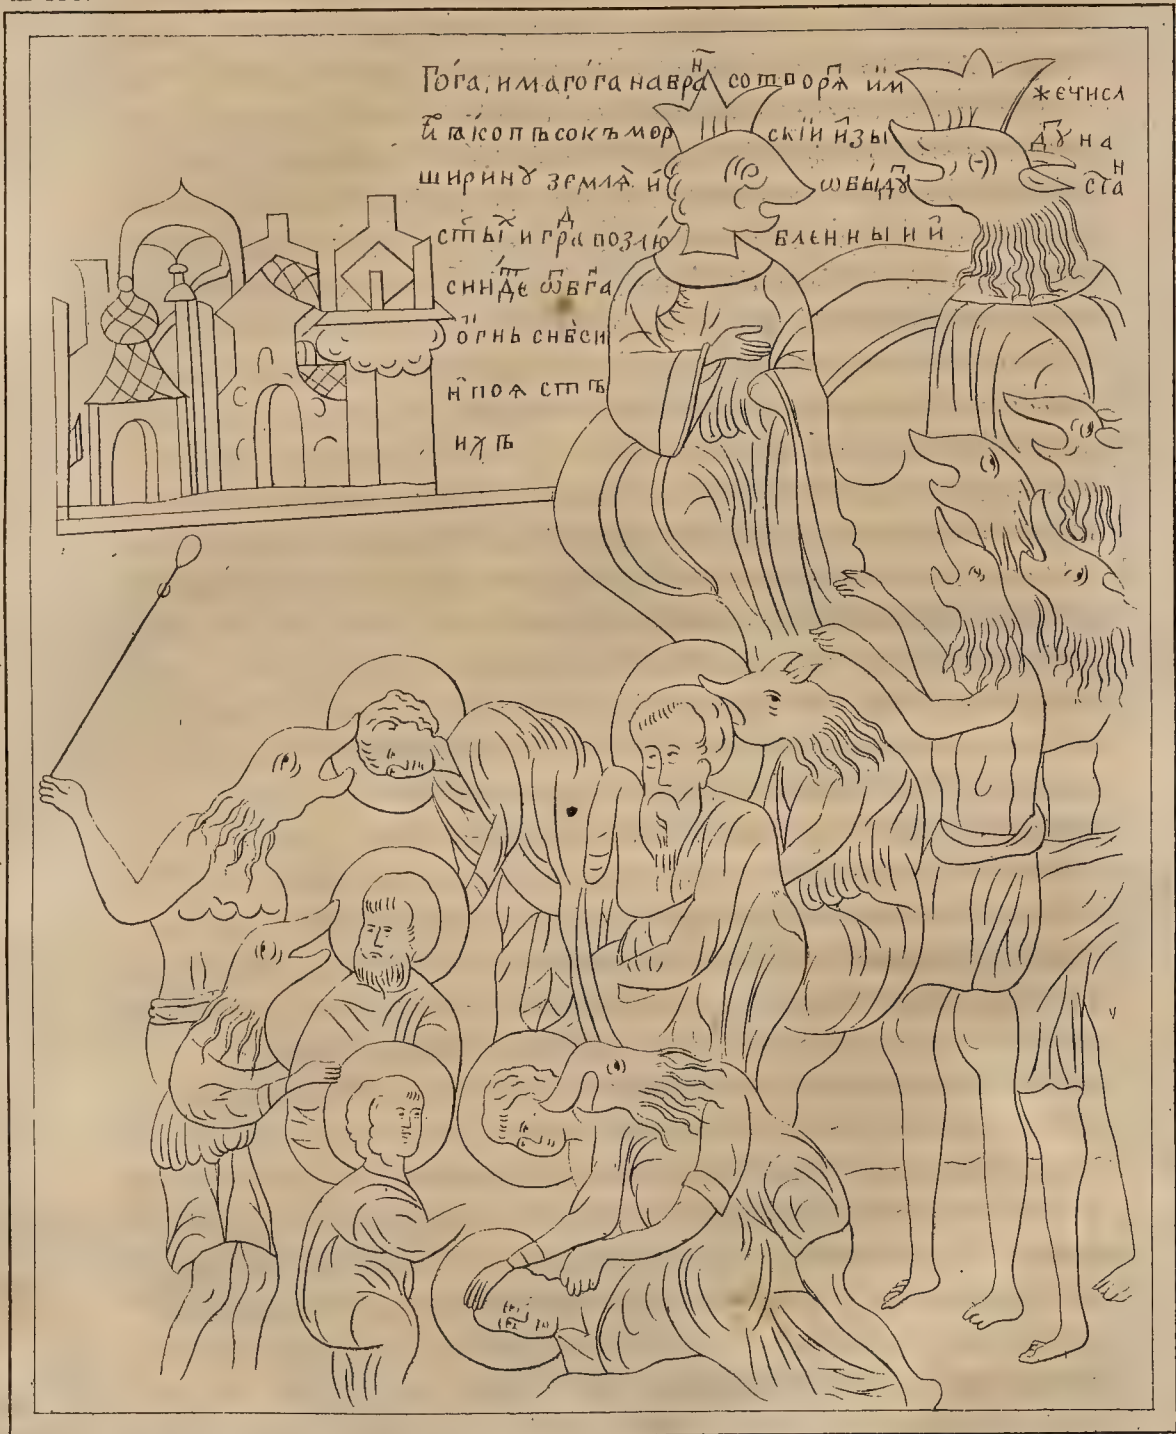 Го́га, и магѡ́га на вра̑ⁿ сотворѧⷫ и҆́м же чи́сл
є҆́ ꙗ҆ко пѣсокъ мор скїи и҆зы дꙋⷫ на
ширинꙋ̀ землѧ̀ и҆ ѡбы́дꙋⷫ стаⷩ
ст҃ыⷯ и граⷣ возлю́ бленныи и҆
сни́де ѿ бг҃а
ѻ҆́гнь с нб҃си
и҆ поѧстъ
ихъ